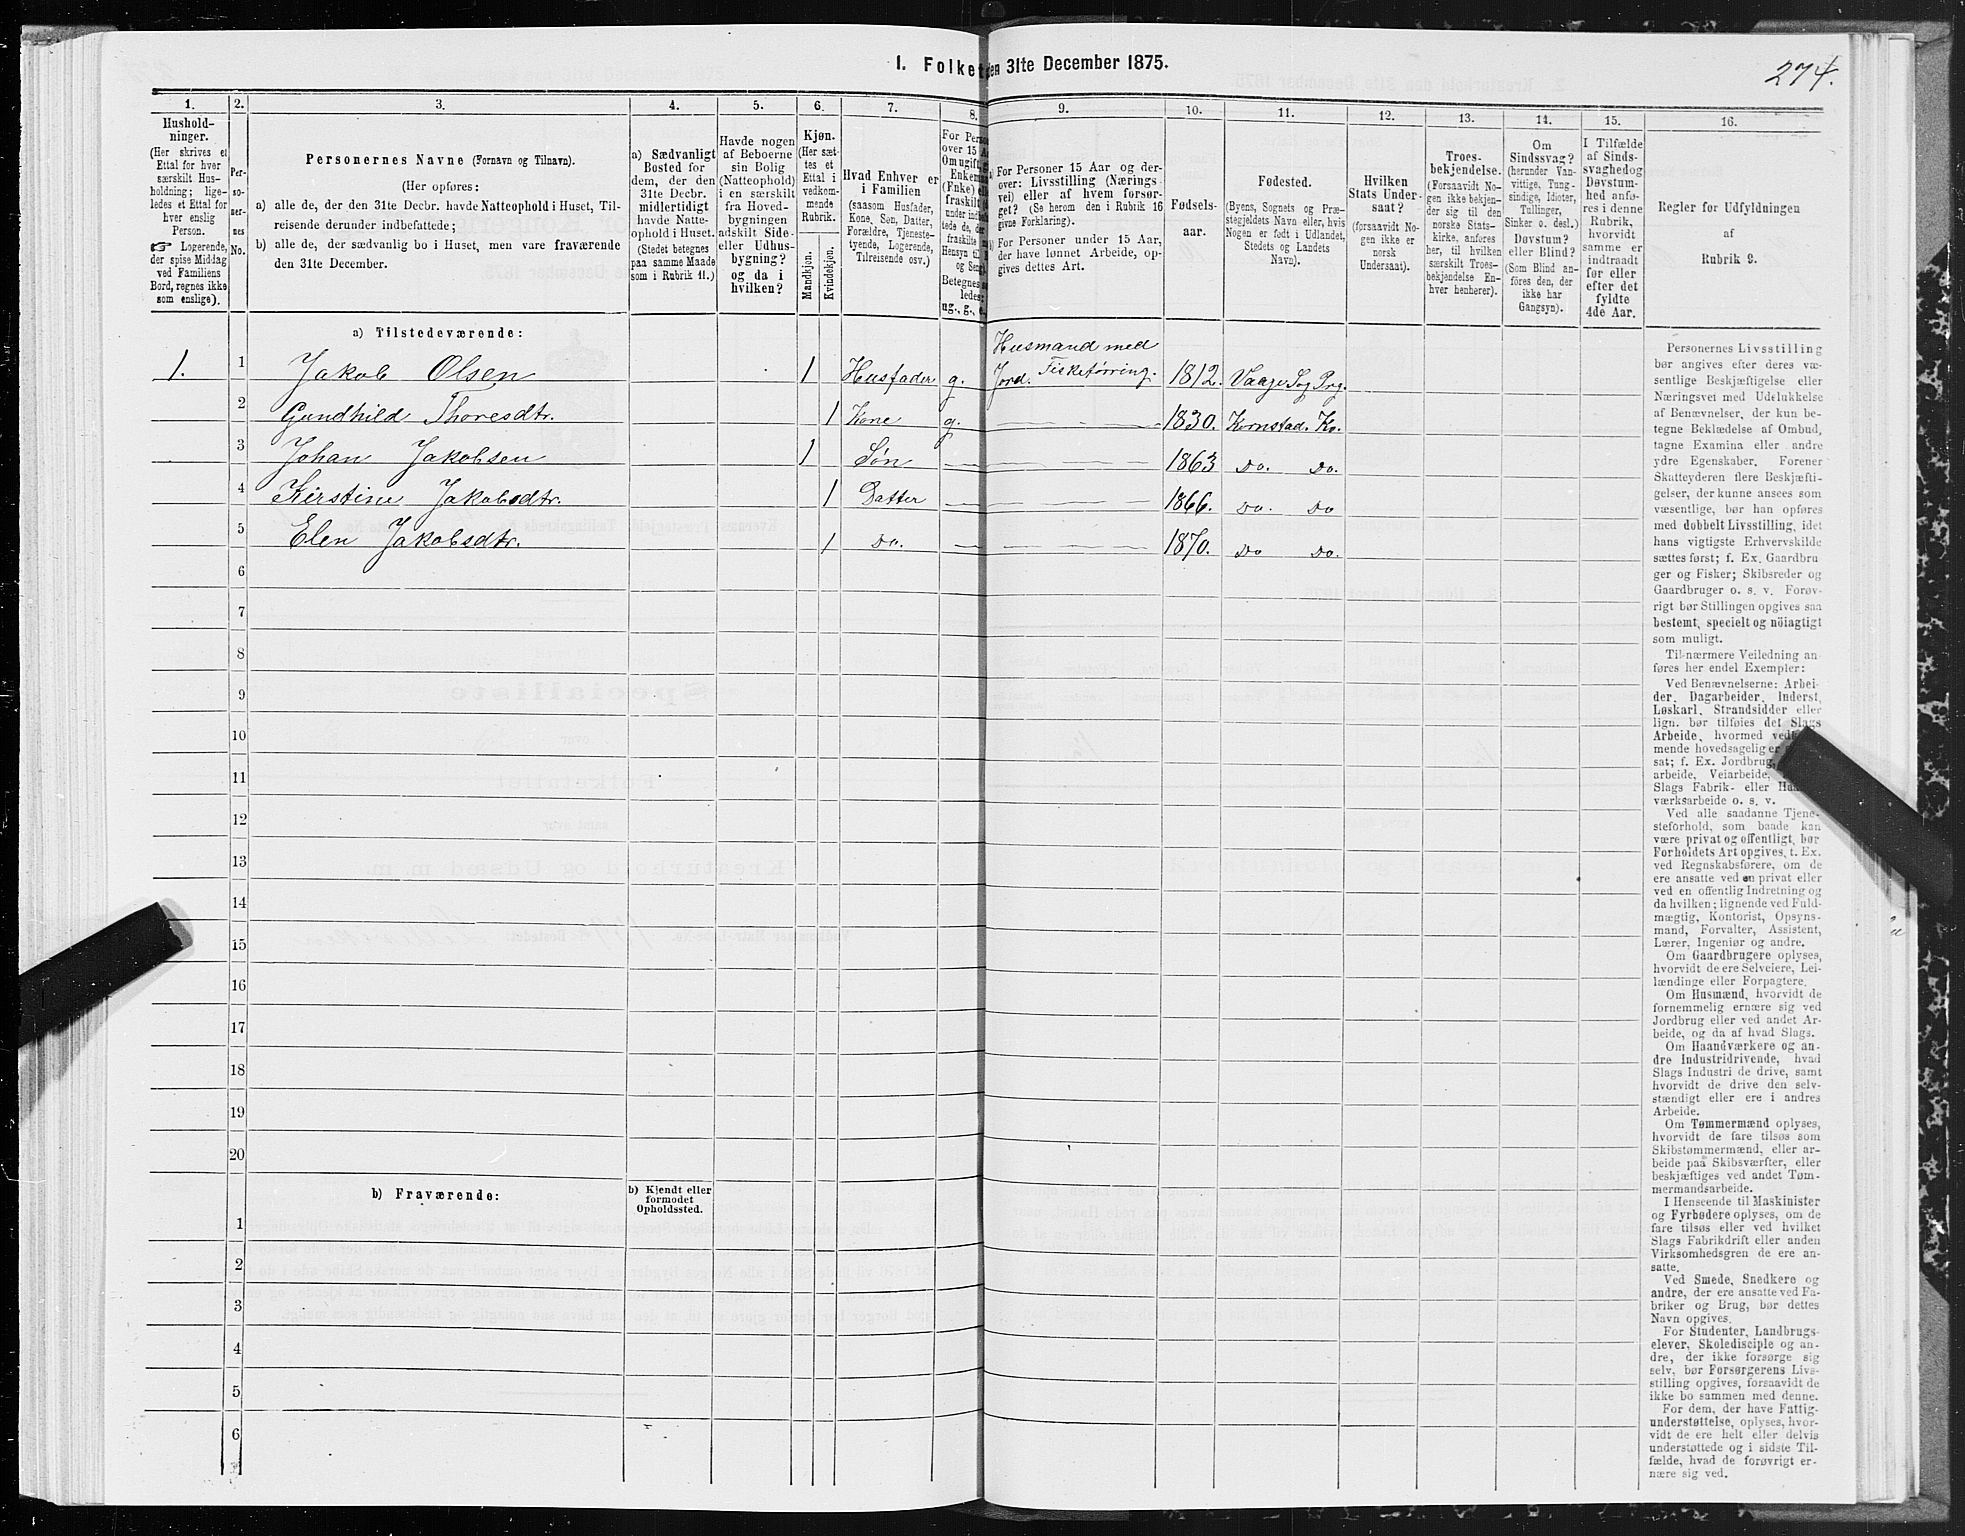 1. Folket den 31te December 1875.
274.
1. 2. 3. 4. 5. 6. 7. 8. 9. 10. 11. 12. 13. 14. 15. 16.
Hushold-
ninger.
(Her skrives et
Ettal for hver
særskilt Hus-
holdning; lige-
ledes et Ettal for
hver enslig
Person.
☞ Logerende,
der spise Middag
ved Familiens
Bord, regnes ikke
som enslige).
Per-
so-
ner-
nes
No.
Personernes Navne (Fornavn og Tilnavn).
(Her opføres:
a) alle de, der den 31te Decbr. havde Natteophold i Huset, Til-
reisende derunder indbefattede;
b) alle de, der sædvanlig bo i Huset, men vare fraværende
den 31te December.
a) Sædvanligt
Bosted for
dem, der den
31te Decbr.
midlertidigt
havde Natte-
ophold i Huset.
(Stedet betegnes
paa samme Maade
som i Rubrik 11.)
Havde nogen
af Beboerne
sin Bolig
(Natteophold)
i en særskilt
fra Hoved-
bygningen
adskilt Side-
eller Udhus-
bygning?
og da i
hvilken?
Kjøn.
(Her sæt-
tes et
Ettal i
vedkom-
mende
Rubrik.
Mandkjøn.
Kvindekjøn.
Hvad Enhver er
i Familien
(saasom Husfader,
Kone, Søn, Datter,
Forældre, Tjeneste-
tyende, Logerende,
Tilreisende osv.)
For Pers
over 15 A
Om ugift, g
Enkem
(Enke) el
fraskilt
under indb
tede de, de
fraskilte
Hensyn til
og Seng
Betegnes s
ledes:
ug., g., e.
a) For Personer 15 Aar og der-
over: Livsstilling (Nærings-
vei) eller af hvem forsør-
get? (Se herom den i Rubrik 16
givne Forklaring).
b) For Personer under 15 Aar,
der have lønnet Arbeide, op-
gives dettes Art.
Fødsels-
aar.
Fødested.
(Byens, Sognets og Præ-
stegjeldets Navn eller, hvis
Nogen er født i Udlandet,
Stedets og Landets
Navn).
Hvilken
Stats Under-
saat?
(forsaavidt No-
gen ikke er
norsk
Undersaat).
Troes-
bekjendelse.
(Forsaavidt No-
gen ikke bekjen-
der sig til den
norske Stats-
kirke, anføres
her, til hvilken
særskilt Troes-
bekjendelse En-
hver henhører).
Om
Sindssvag?
(herunder Van-
vittige, Tung-
sindige, Idioter,
Tullinger,
Sinker o. desl.)
Døvstum?
eller Blind?
(Som Blind an-
føres den, der
ikke har
Gangsyn).
I Tilfælde
af Sinds-
svaghed og
Døvstum-
hed anfø-
res i denne
Rubrik,
hvorvidt
samme er
indtraadt
før eller
efter det
fyldte
4de Aar.
Regler for Udfyldningen
af
Rubrik 9.
a) Tilstedeværende:
1. 1 Jakob Olsen 1 Husfader g. Husmand med
Jord. Fisketørring. 1812. Vaage Sog Prg.
2 Gundhild Thoresdtr. 1 Kone g. — 1830. Kornstad. Kv.
3 Johan Jakobsen 1 Søn — — 1863 Do. Do.
4 Kirstine Jakobsdtr. 1 Datter — — 1866. Do. Do
5 Elen Jakobsdtr. 1 Do. — — 1870. Do Do.
6
7
8
9
10
11
12
13
14
15
16
17
18
19
20
b) Fraværende:
b) Kjendt eller
formodet
Opholdssted.
1
2
3
4
5
6
Personernes Livsstilling
bør angives efter deres væ-
sentlige Beskjæftigelse eller
Næringsvei med Udelukkelse
af Benævnelser, der kun be-
tegne Beklædelse af Ombud,
tagne Examina eller andre
ydre Egenskaber. Forener
Skatteyderen flere Beskjæfti-
gelser, der kunne ansees som
væsentlige, bør han opføres
med dobbelt Livsstilling, idet
hans vigtigste Erhvervskilde
sættes først; f. Ex. Gaardbru
ger og Fisker; Skibsreder og
Gaardbruger o. s. v. Forøv-
rigt bør Stillingen opgives saa
bestemt, specielt og nöiagtigt
som muligt.
Til nærmere Veiledning an-
føres her endel Exempler:
Ved Benævnelserne: Arbei-
der, Dagarbeider, Inderst,
Løskarl, Strandsidder eller
lign. bør tilføies det Slags
Arbeide, hvormed ved
mende hovedsagelig er
sat; f. Ex. Jordbrug,
arbeide, Veiarbeide,
Slags Fabrik- eller Haa
værksarbeide o. s. v.
Ved alle saadanne Tjene-
steforhold, som baade kan
være privat og offentligt, bør
Forholdets Art opgives, t. Ex.
ved Regnskabsførere, om de
ere ansatte ved en privat eller
ved en offentlig Indretning og
da hvilken; lignende ved Fuld-
mægtig, Kontorist, Opsyns-
mand, Forvalter, Assistent,
Lærer, Ingeniør og andre.
Om Gaardbrugere oplyses,
hvorvidt de ere Selveiere, Lei-
lændinge eller Forpagtere.
Om Husmænd, hvorvidt de
fornemmelig ernære sig ved
Jordbrug eller ved andet Ar-
beide, og da af hvad Slags.
Om Haandværkere og an-
dre Industridrivende, hvad
Slags Industri de drive, samt
hvorvidt de drive den selv-
stændigt eller ere i andres
Arbeide.
Om Tømmermænd oplyses,
hvorvidt de fare tilsøs som
Skibstømmermænd, eller ar-
beide paa Skibsværfter, eller
beskjæftiges ved andet Tøm-
mermandsarbeide.
I Henseende til Maskinister
og Fyrbødere oplyses, om de
fare tilsøs eller ved hvilket
Slags Fabrikdrift eller anden
Virksomhedsgren de ere an-
satte.
Ved Smede, Snedkere og
andre, der ere ansatte ved Fa-
briker og Brug, bør dettes
Navn opgives.
For Studenter, Landbrugs-
elever, Skoledisciple og an-
dre, der ikke forsørge sig
selv, bør Forsørgerens Livs-
stilling opgives, forsaavidt de
ikke bo sammen med denne.
For dem, der have Fattig-
understøttelse, oplyses, hvor-
vidt de ere helt eller delvis
understøttede og i sidste Til-
fælde, hvad de forøvrigt er-
nære sig ved.